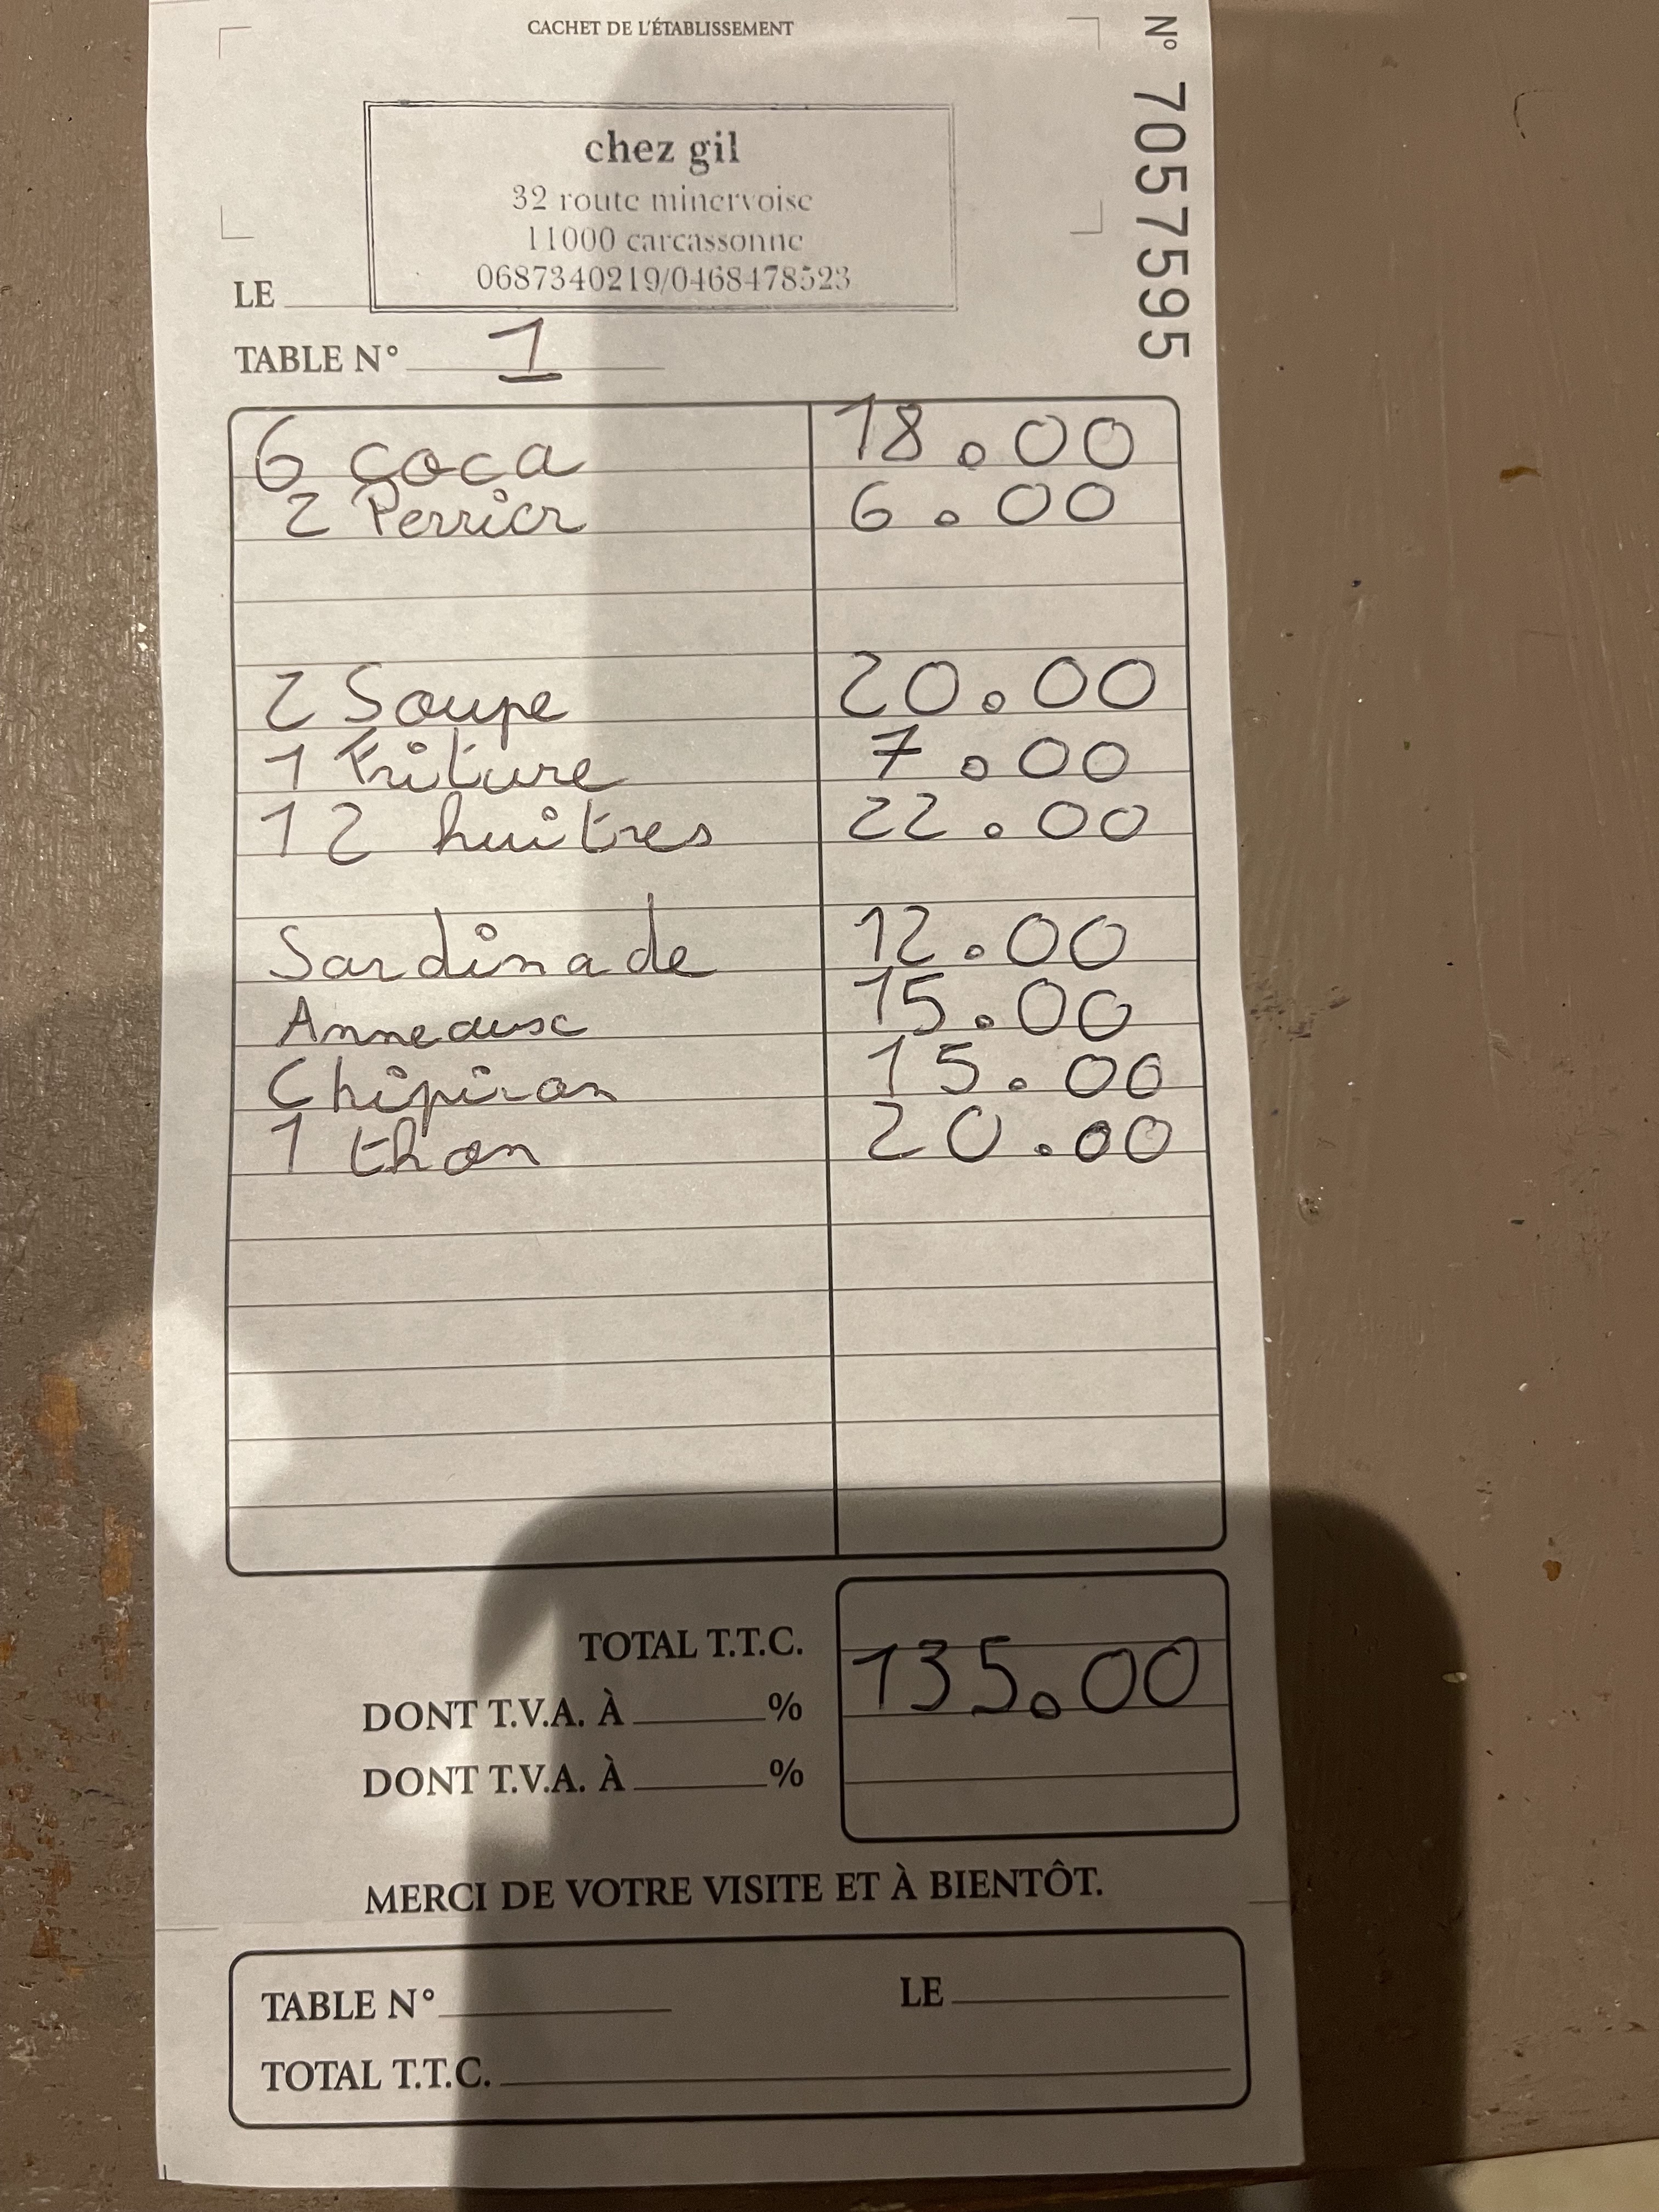 CACHET DE L'ÉTABLISSEMENT
N° 7057595
chez gil
32 route minervoise
11000 carcassonne
0687340219/0468478523
LE
TABLE N° 1
6 coca 18.00
2 Perrier 6.00
2 Soupe 20.00
1 Friture 7.00
12 huitres 22.00
Sardinade 12.00
Anneaux 15.00
Chipiron 15.00
1 thon 20.00
TOTAL T.T.C. 135.00
DONT T.V.A. À %
DONT T.V.A. À %
MERCI DE VOTRE VISITE ET À BIENTÔT.
TABLE N° LE
TOTAL T.T.C.